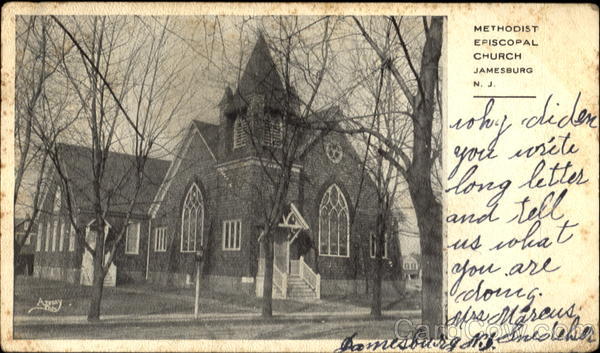 METHODIST
EPISCOPAL
CHURCH
JAMESBURG
N. J.
why diden
you write
long letter
and tell
us what
you are
doing.
Mrs Marcus
Jamesburg N.J.
CardCow.com